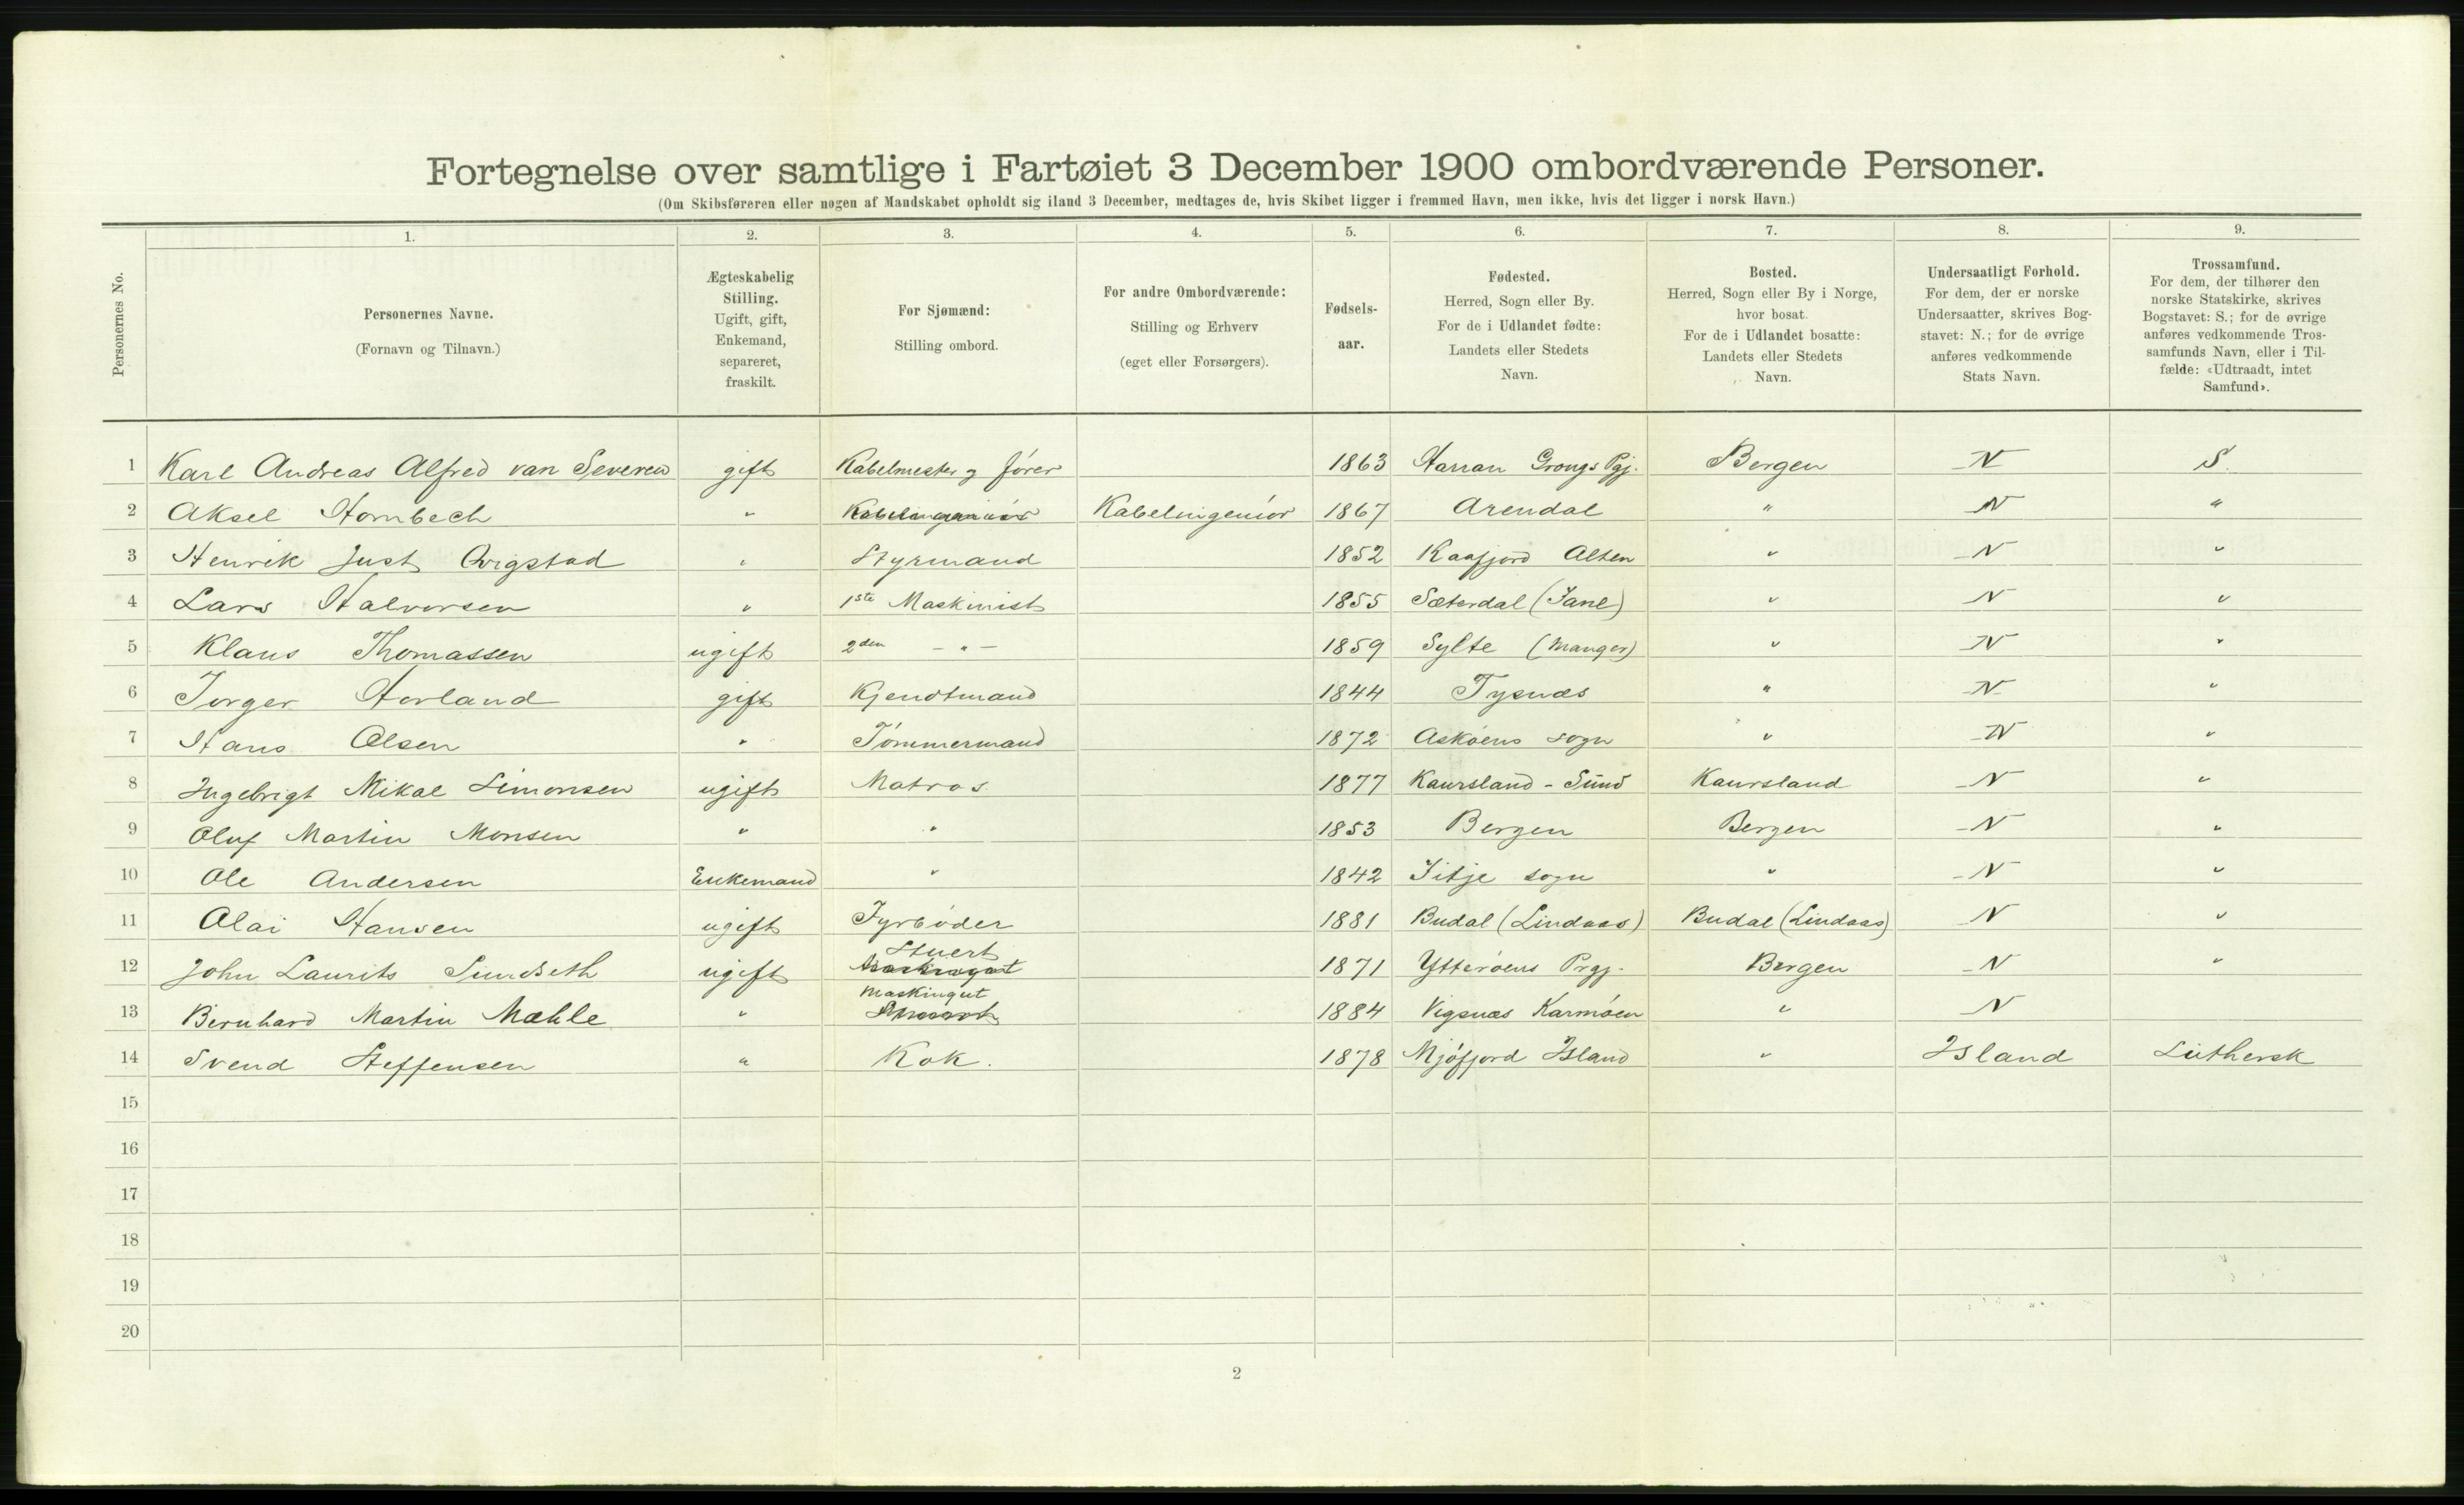 Fortegnelse over samtlige i Fartøiet 3 December 1900 ombordværende Personer.
(Om Skibsføreren eller nogen af Mandskabet opholdt sig iland 3 December, medtages de, hvis Skibet ligger i fremmed Havn, men ikke, hvis det ligger i norsk Havn.)
Personernes No.
1. 2. 3. 4. 5. 6. 7. 8. 9.
Personernes Navne.
(Fornavn og Tilnavn.)
Ægteskabelig
Stilling.
Ugift, gift,
Enkemand,
separeret,
fraskilt.
For Sjømænd:
Stilling ombord.
For andre Ombordværende:
Stilling og Erhverv
(eget eller Forsørgers).
Fødsels-
aar.
Fødested.
Herred, Sogn eller By.
For de i Udlandet fødte:
Landets eller Stedets
Navn.
Bosted.
Herred, Sogn eller By i Norge,
hvor bosat.
For de i Udlandet bosatte:
Landets eller Stedets
Navn.
Undersaatligt Forhold.
For dem, der er norske
Undersaatter, skrives Bog-
stavet: N.; for de øvrige
anføres vedkommende
Stats Navn.
Trossamfund.
For dem, der tilhører den
norske Statskirke, skrives
Bogstavet: S.; for de øvrige
anføres vedkommende Tros-
samfunds Navn, eller i Til-
fælde: «Udtraadt, intet
Samfund».
1 Karl Andreas Alfred van Severen gift Kabelmester og fører 1863 Harran Grongs Pgj. Bergen N S.
2 Aksel Hornbech " Kabelingeniør Kabelingeniør 1867 Arendal " N "
3 Henrik Just Qvigstad " Styrmand 1852 Kaafjord Alten " N "
4 Lars Halvorsen " 1ste Maskinist 1855 Sæterdal " N "
5 Klaus Thomassen ugift 2den - " - 1859 Sylte (Manger) " N "
6 Torger Horland gift Kjendtmand 1844 Tysnæs " N "
7 Hans Olsen " Tømmermand 1872 Askøens sogn " N "
8 Ingebrigt Mikal Simonsen ugift Matros 1877 Kaursland - Sund Kaursland N "
9 Oluf Martin Monsen " " 1853 Bergen Bergen N "
10 Ole Andersen Enkemand " 1842 Fitje sogn " N "
11 Olai Hansen ugift Fyrbøder 1881 Budal (Lindaas) Budal (Lindaas) N "
12 John Laurits Sundseth ugift Stuert Maskingut 1871 Ytterøens Prgj. Bergen N "
13 Bernhard Martin Mæhle " Maskingut Stuert 1884 Vigsnæs Karmøen " N
14 Svend Steffensen " Kok. 1878 Mjófjord Island " Island Luthersk
15
16
17
18
19
20
2